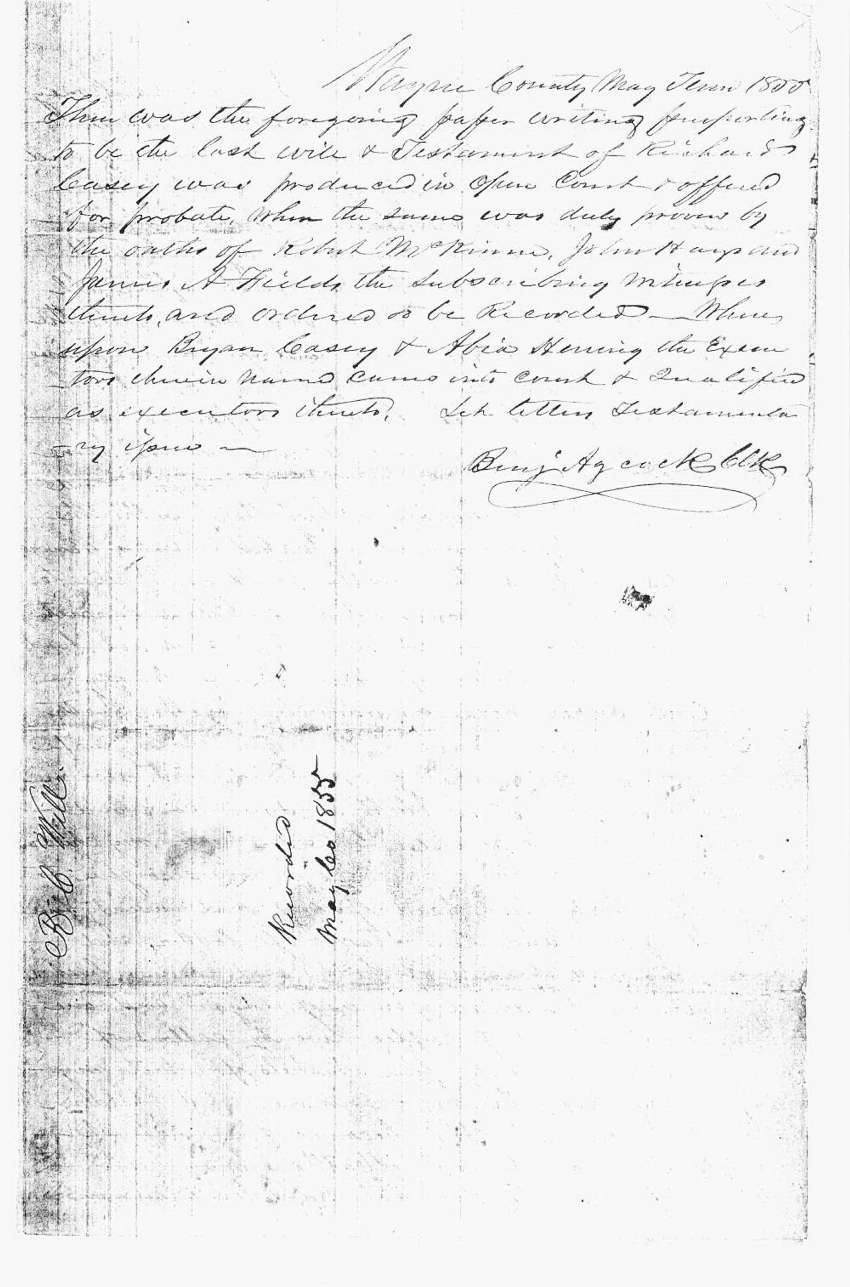 Wayne County May Term 1855
Then was the foregoing paper writing purporting
to be the last will & Testament of Richard
Casey was produced in open Court & offered
for probate, when the same was duly proven by
the oaths of Robert McKinne, John Hays and
James A Fields, the subscribing witnesses
thereto, and ordered to be Recorded — Where
upon Bryan Casey & Abia Herring the Execu
tors therein named came into court & Qualified
as executors thereto. Let letters Testamenta
-ry issue —
Benj Aycock Clk
R. C. Will
Recorded
May Co 1855